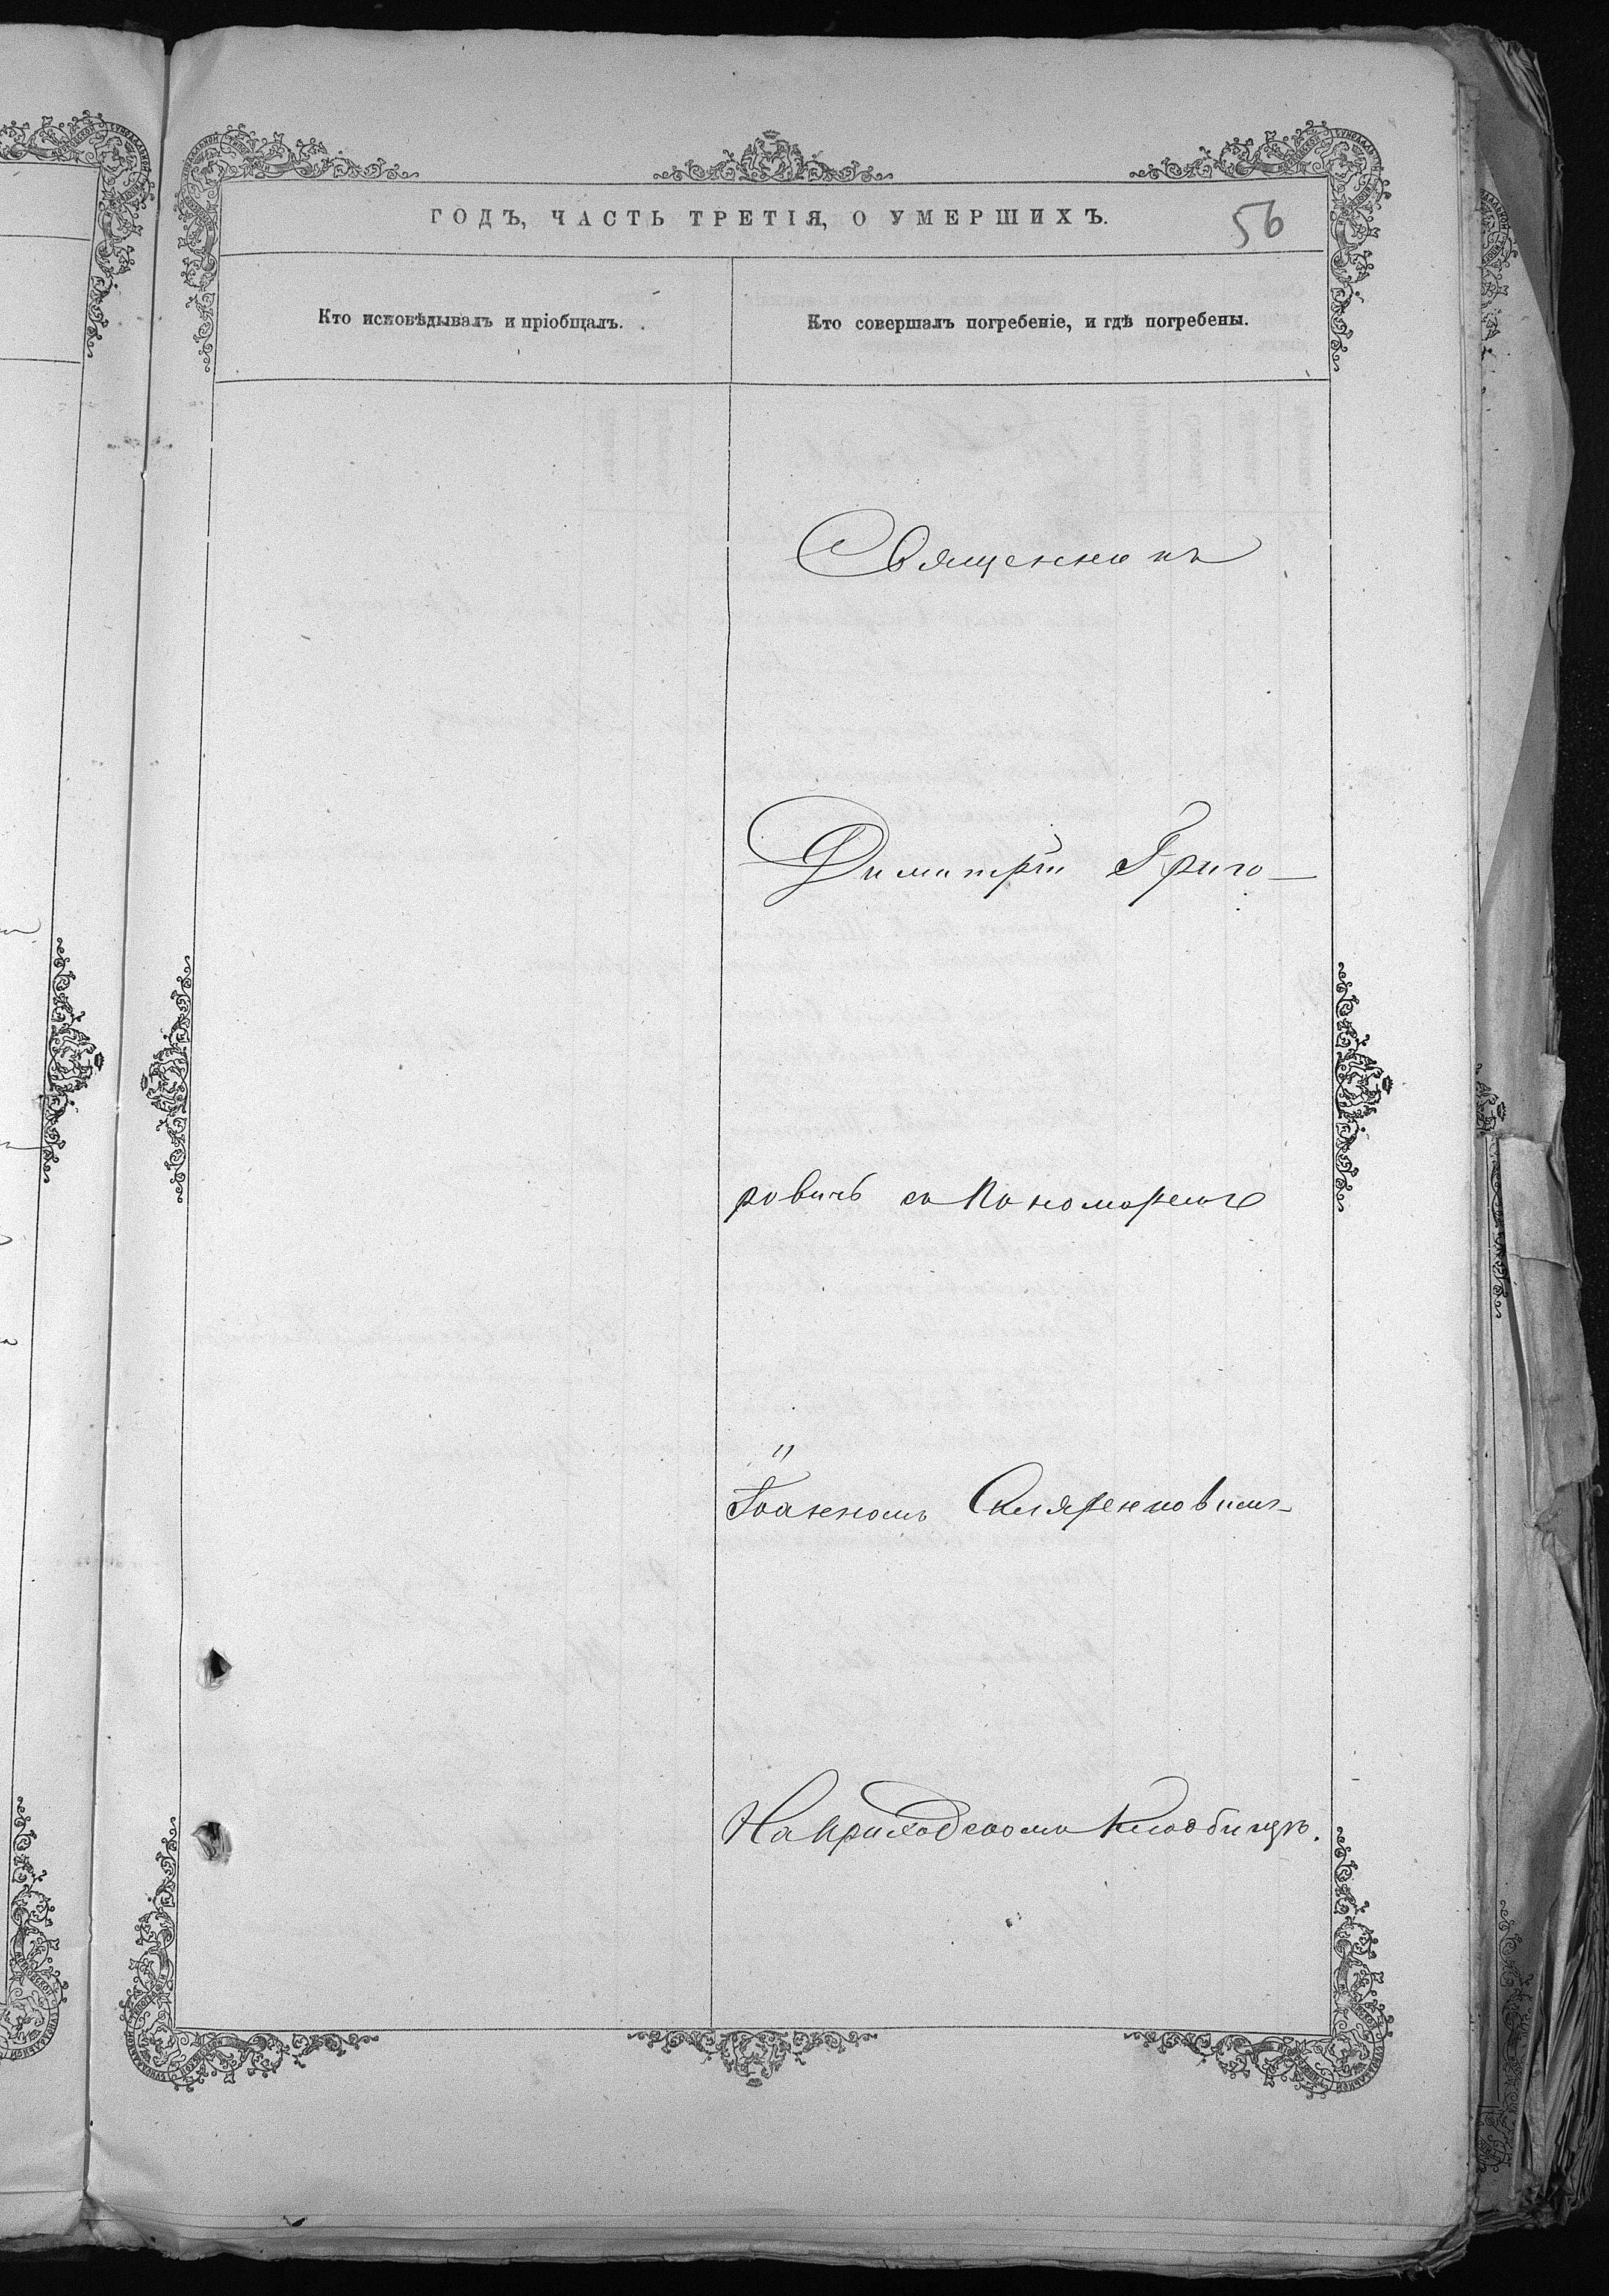 ГОДЪ, ЧАСТЬ ТРЕТІЯ, О УМЕРШИХЪ.
56
Кто исповѣдывалъ и пріобщалъ.
Кто совершалъ погребеніе, и гдѣ погребены.
Священникъ
Димитрій Григо-
ровичъ съ Пономаремъ
Іоанномъ Скляренковимъ
На приходскомъ кладбищѣ.